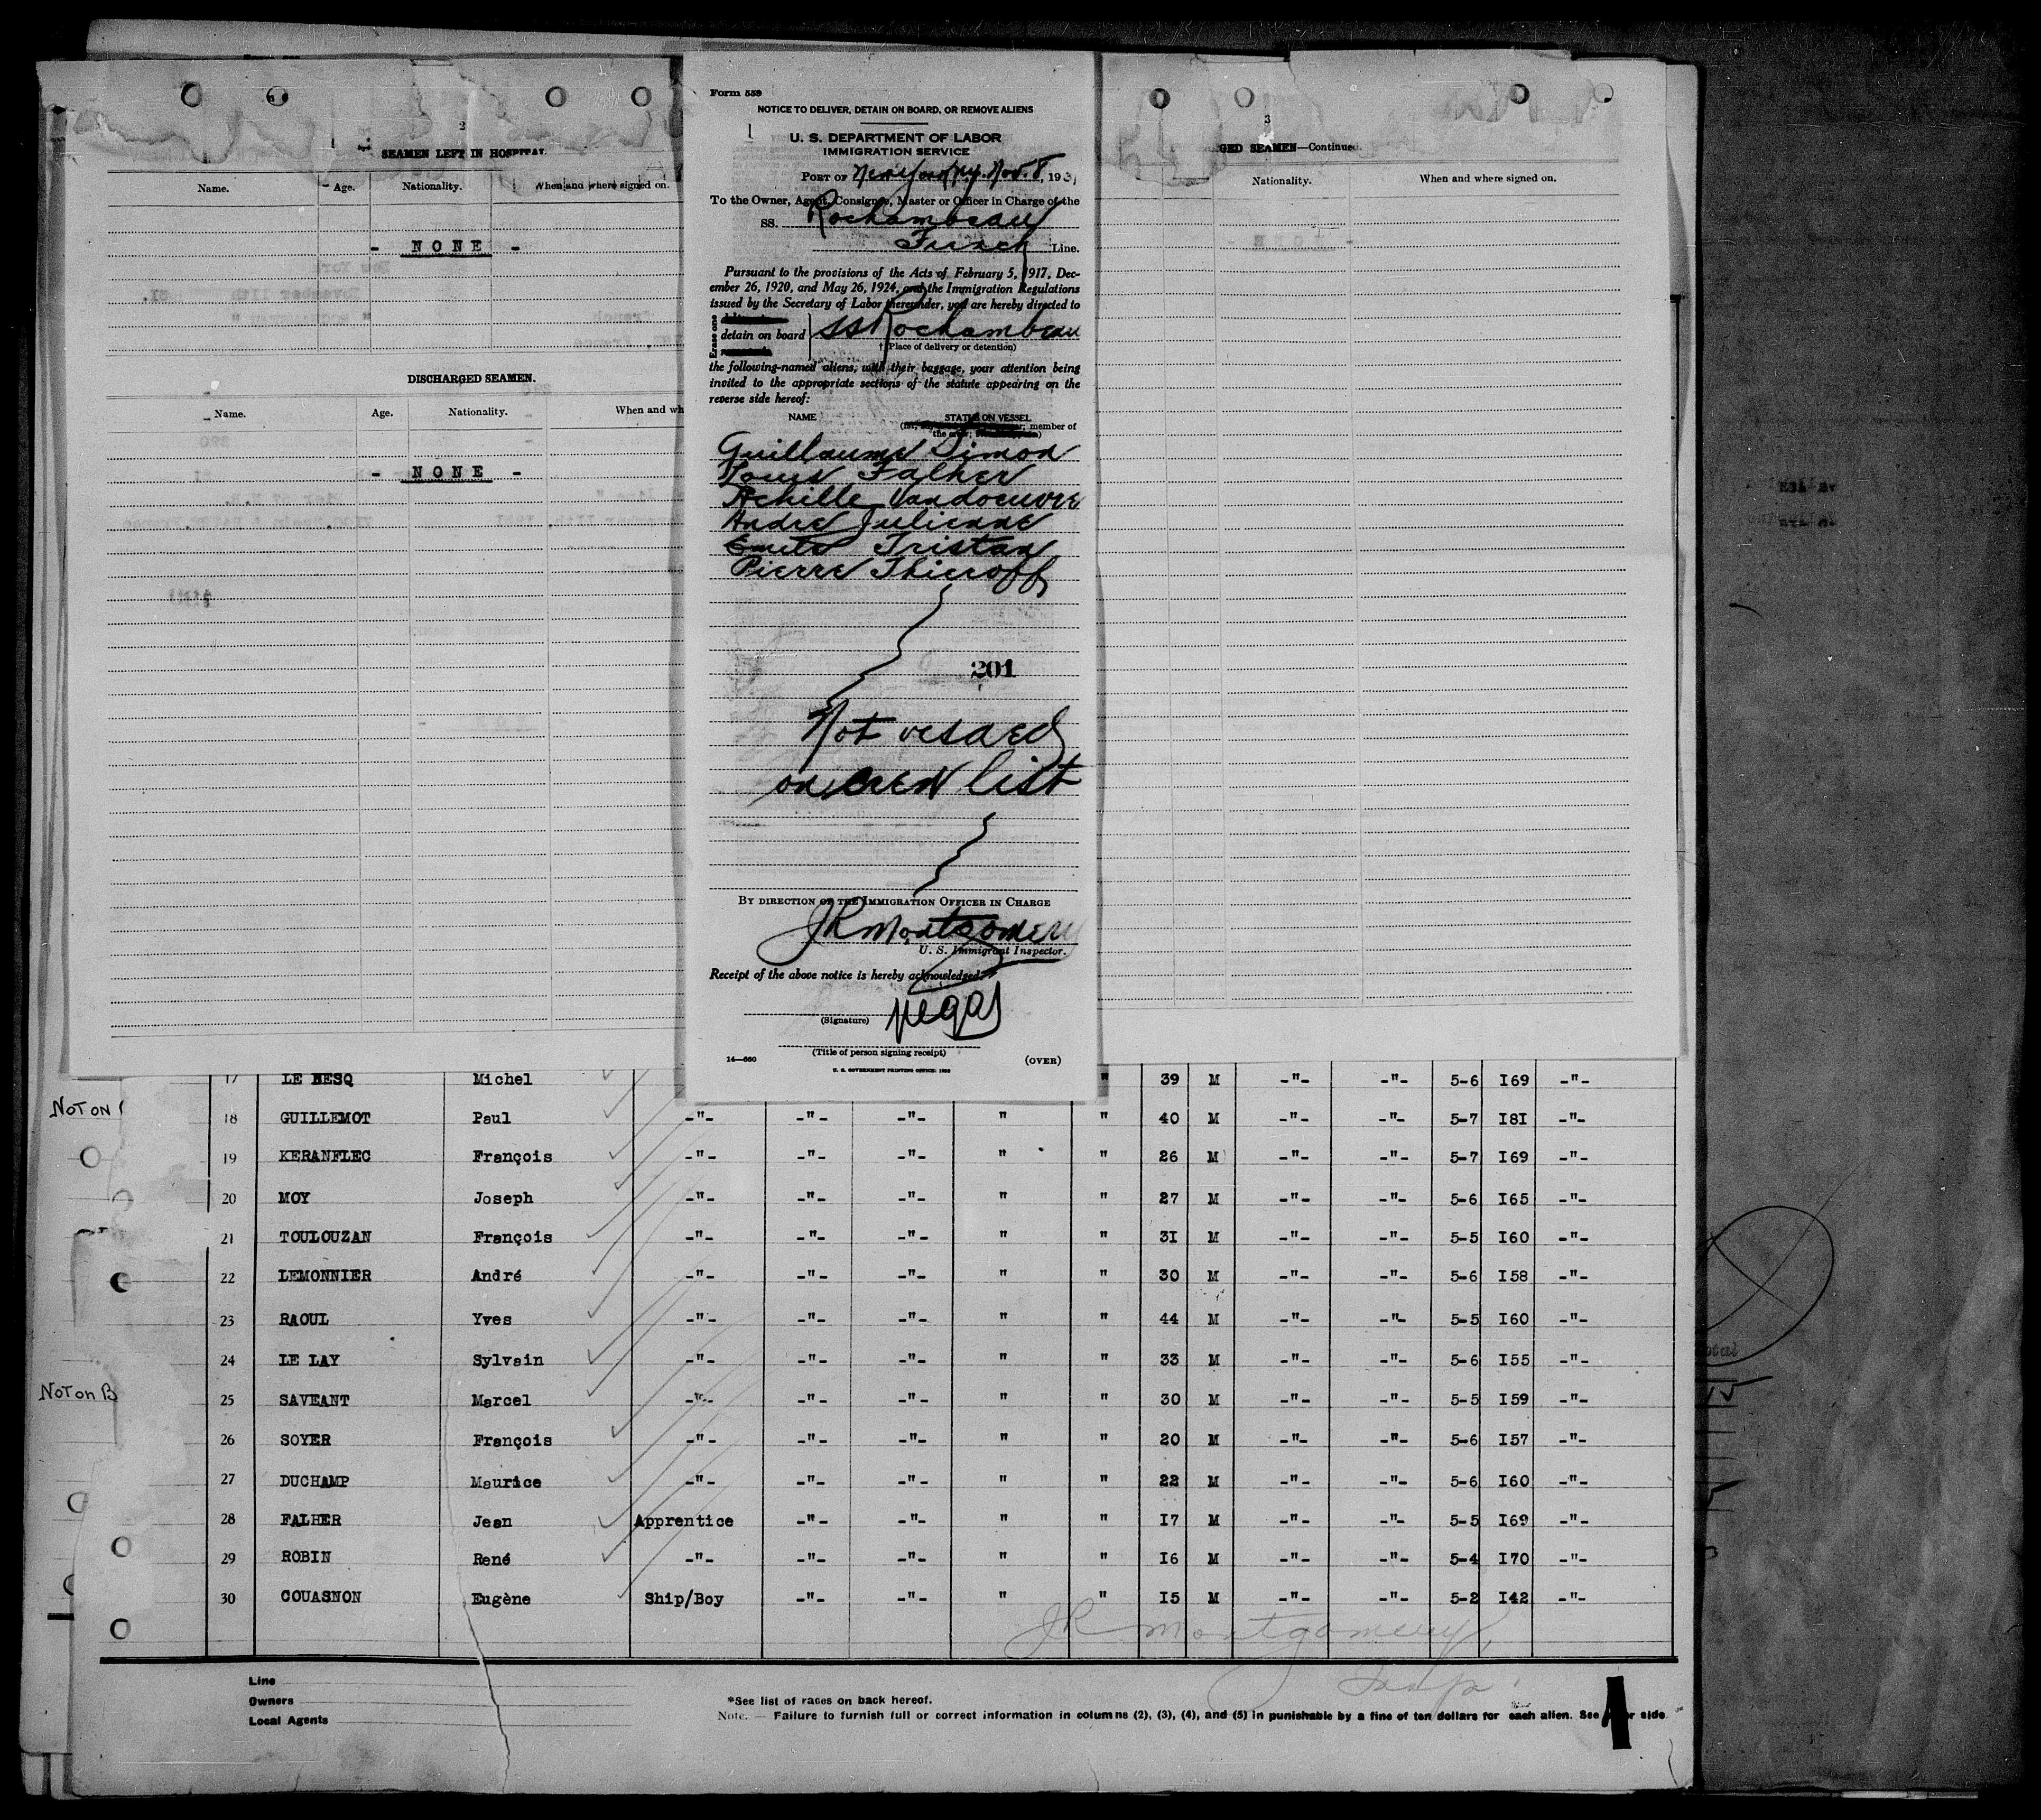 2
SEAMEN LEFT IN HOSPITAL.
Name. Age. Nationality. When and where signed on.
- NONE -
DISCHARGED SEAMEN.
Name. Age. Nationality. When and wh
- NONE -
Form 559
NOTICE TO DELIVER, DETAIN ON BOARD, OR REMOVE ALIENS
1
U. S. DEPARTMENT OF LABOR
IMMIGRATION SERVICE
PORT OF New York, NY. Nov. 8, 1931
To the Owner, Agent, Consignee, Master or Officer in Charge of the
SS. Rochambeau
French Line.
Pursuant to the provisions of the Acts of February 5, 1917, Dec-
ember 26, 1920, and May 26, 1924, and the Immigration Regulations
issued by the Secretary of Labor thereunder, you are hereby directed to
Erase one
detain on board } SS Rochambeau
† (Place of delivery or detention)
the following-named aliens, with their baggage, your attention being
invited to the appropriate sections of the statute appearing on the
reverse side hereof:
NAME STATUS ON VESSEL
member of
the crew;
Guillaume Simon
Louis Falher
Achille Vandoeuvre
Andre Julienne
Emile Tristan
Pierre Thieroff
201
Not visaed
on crew list
BY DIRECTION OF THE IMMIGRATION OFFICER IN CHARGE
JR Montgomery
U. S. Immigrant Inspector.
Receipt of the above notice is hereby acknowledged
(Signature)
(Title of person signing receipt)
14—660 (OVER)
U. S. GOVERNMENT PRINTING OFFICE: 1930
3
GED SEAMEN—Continued.
Nationality. When and where signed on.
- NONE -
17 LE BESQ Michel " 39 M -"- -"- 5-6 I69 -"-
NOT ON
18 GUILLEMOT Paul -"- -"- -"- " " 40 M -"- -"- 5-7 I8I -"-
19 KERANFLEC François -"- -"- -"- " " 26 M -"- -"- 5-7 I69 -"-
20 MOY Joseph -"- -"- -"- " " 27 M -"- -"- 5-6 I65 -"-
21 TOULOUZAN François -"- -"- -"- " " 3I M -"- -"- 5-5 I60 -"-
22 LEMONNIER André -"- -"- -"- " " 30 M -"- -"- 5-6 I58 -"-
23 RAOUL Yves -"- -"- -"- " " 44 M -"- -"- 5-5 I60 -"-
24 LE LAY Sylvain -"- -"- -"- " " 33 M -"- -"- 5-6 I55 -"-
NOT on B
25 SAVEANT Marcel -"- -"- -"- " " 30 M -"- -"- 5-5 I59 -"-
26 SOYER François -"- -"- -"- " " 20 M -"- -"- 5-6 I57 -"-
27 DUCHAMP Maurice -"- -"- -"- " " 22 M -"- -"- 5-6 I60 -"-
28 FALHER Jean Apprentice -"- -"- " " I7 M -"- -"- 5-5 I69 -"-
29 ROBIN René -"- -"- -"- " " I6 M -"- -"- 5-4 I70 -"-
30 COUASNON Eugène Ship/Boy -"- -"- " " I5 M -"- -"- 5-2 I42 -"-
JR Montgomery,
Insp.
Line
Owners
Local Agents
*See list of races on back hereof.
Note. — Failure to furnish full or correct information in columns (2), (3), (4), and (5) in punishable by a fine of ten dollars for each alien. See side